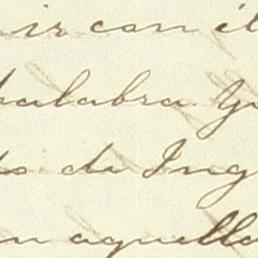 ir con el
palabra. Yo
to de Ing
en aquella